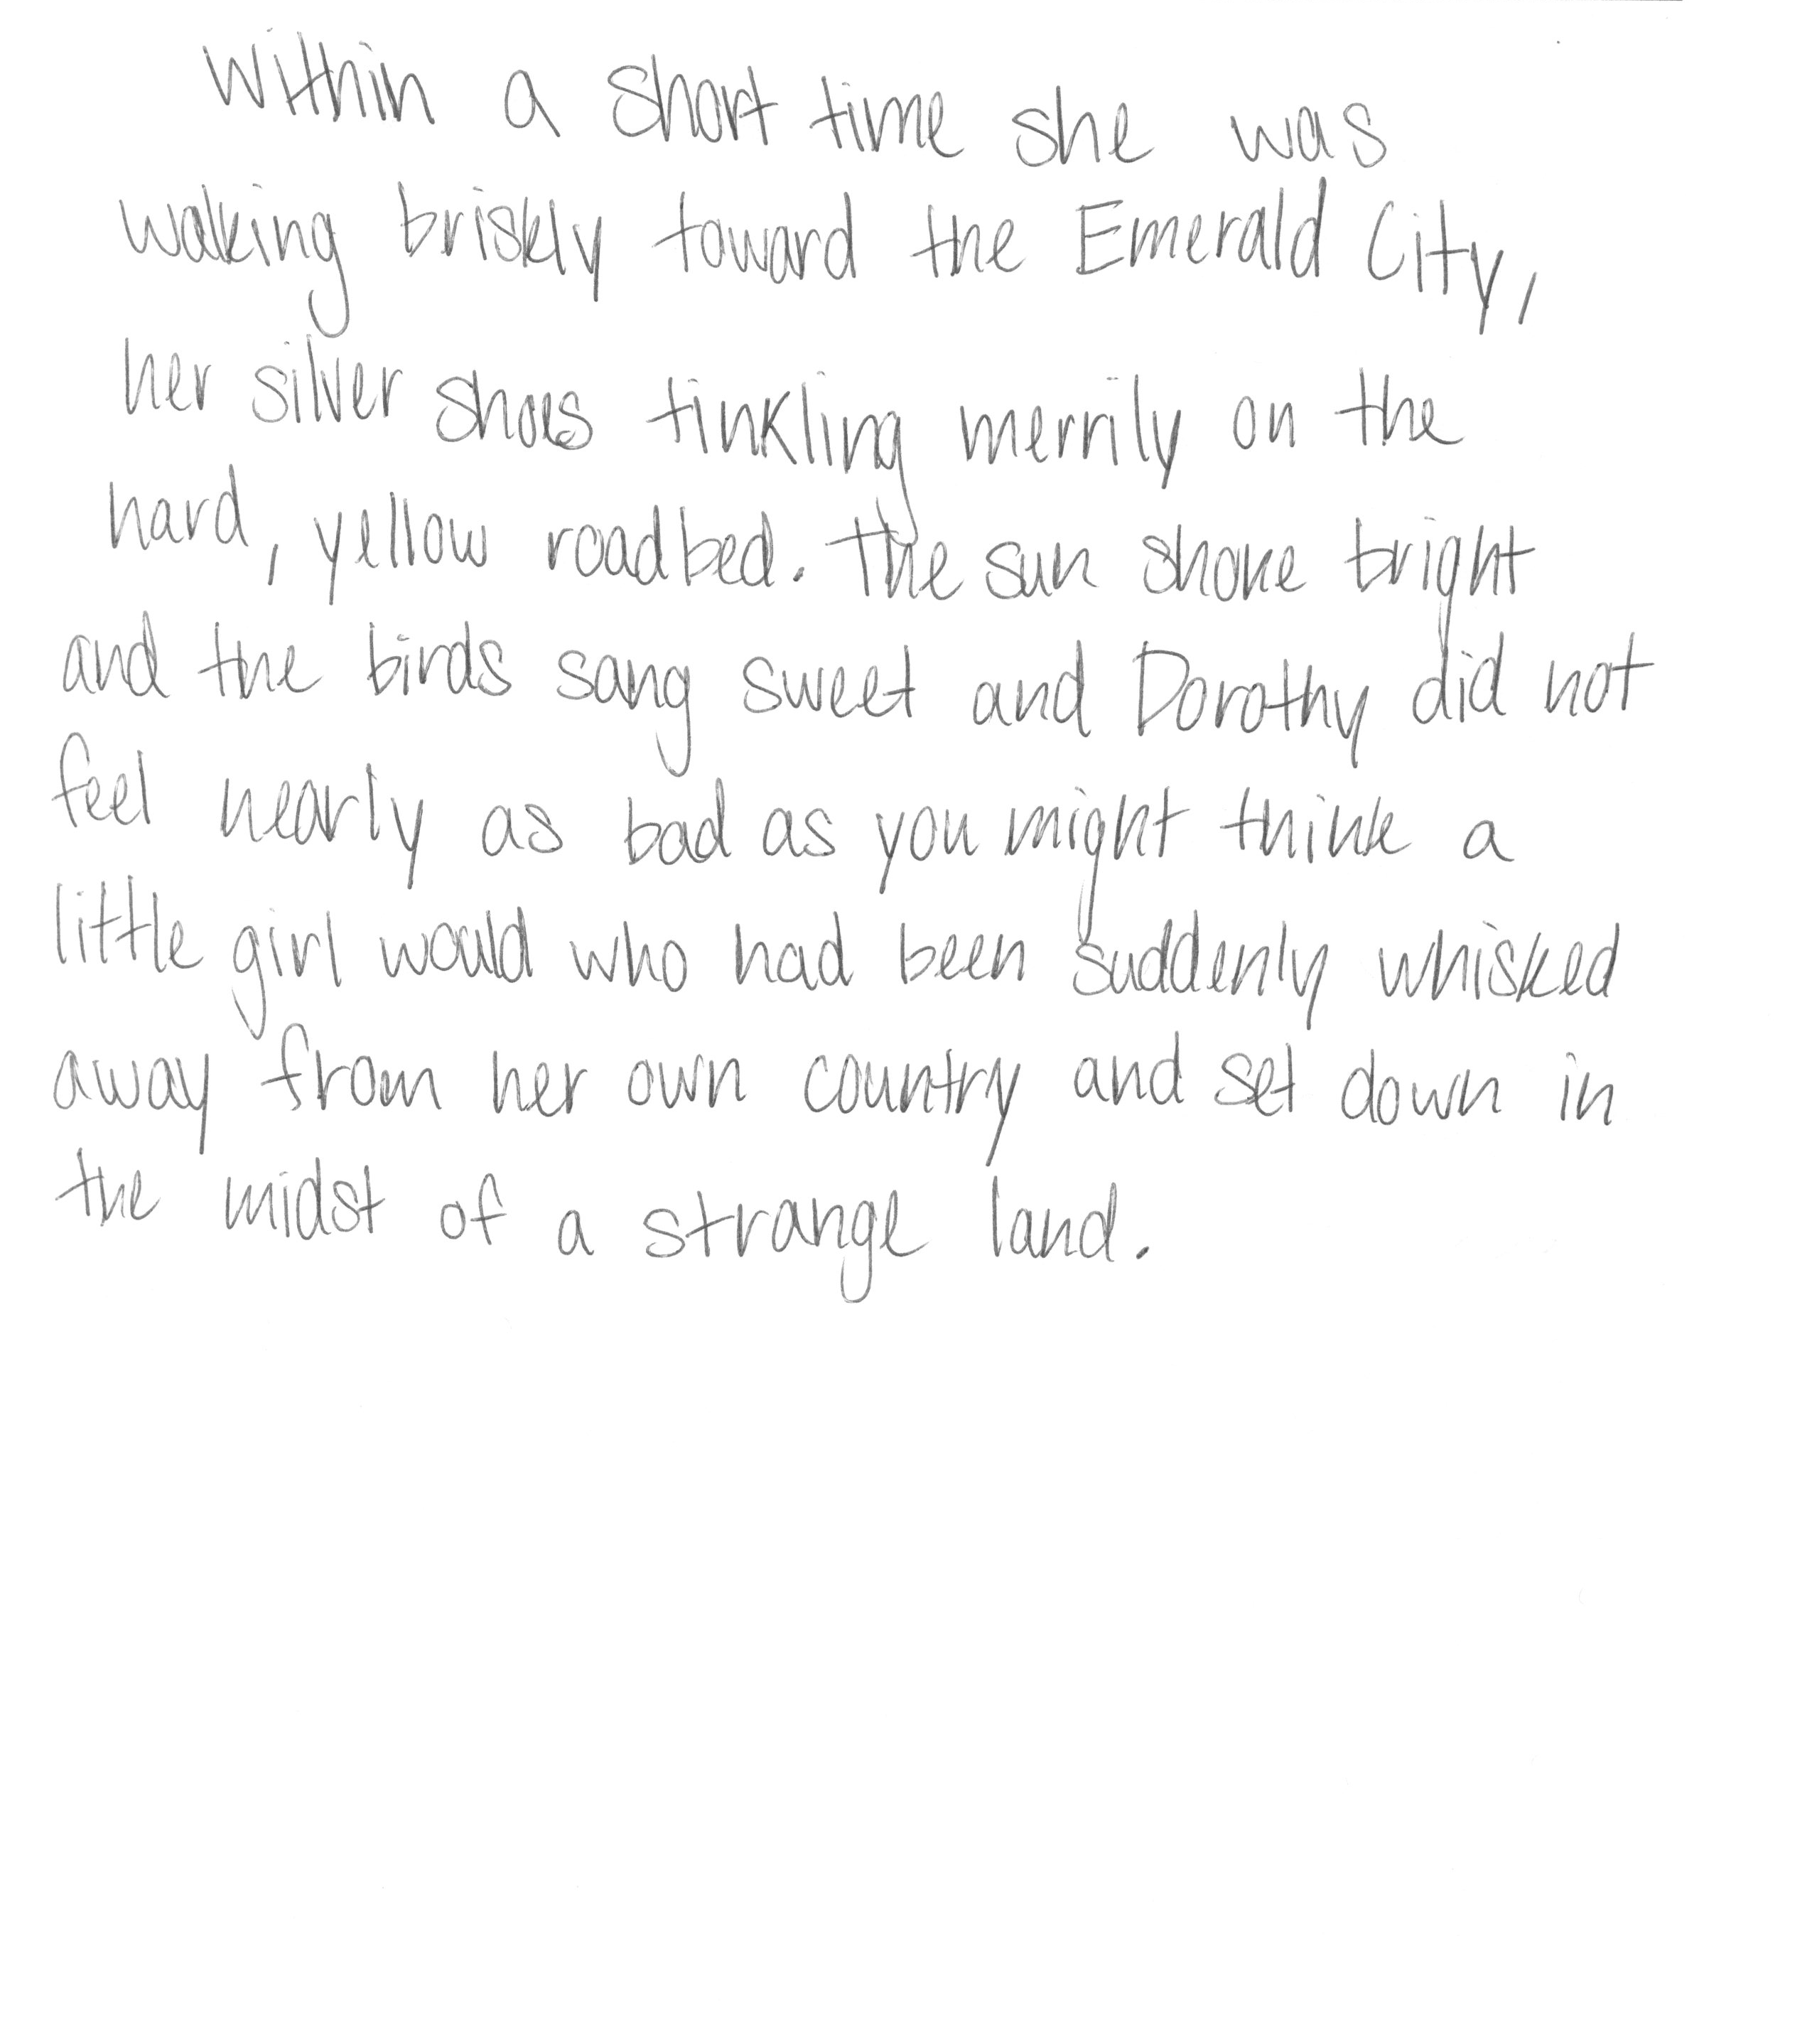 Within a short time she was
walking briskly toward the Emerald City,
her silver shoes tinkling merrily on the
hard, yellow roadbed. The sun shone bright
and the birds sang sweet and Dorothy did not
feel nearly as bad as you might think a
little girl would who had been suddenly whisked
away from her own country and set down in
the midst of a strange land.